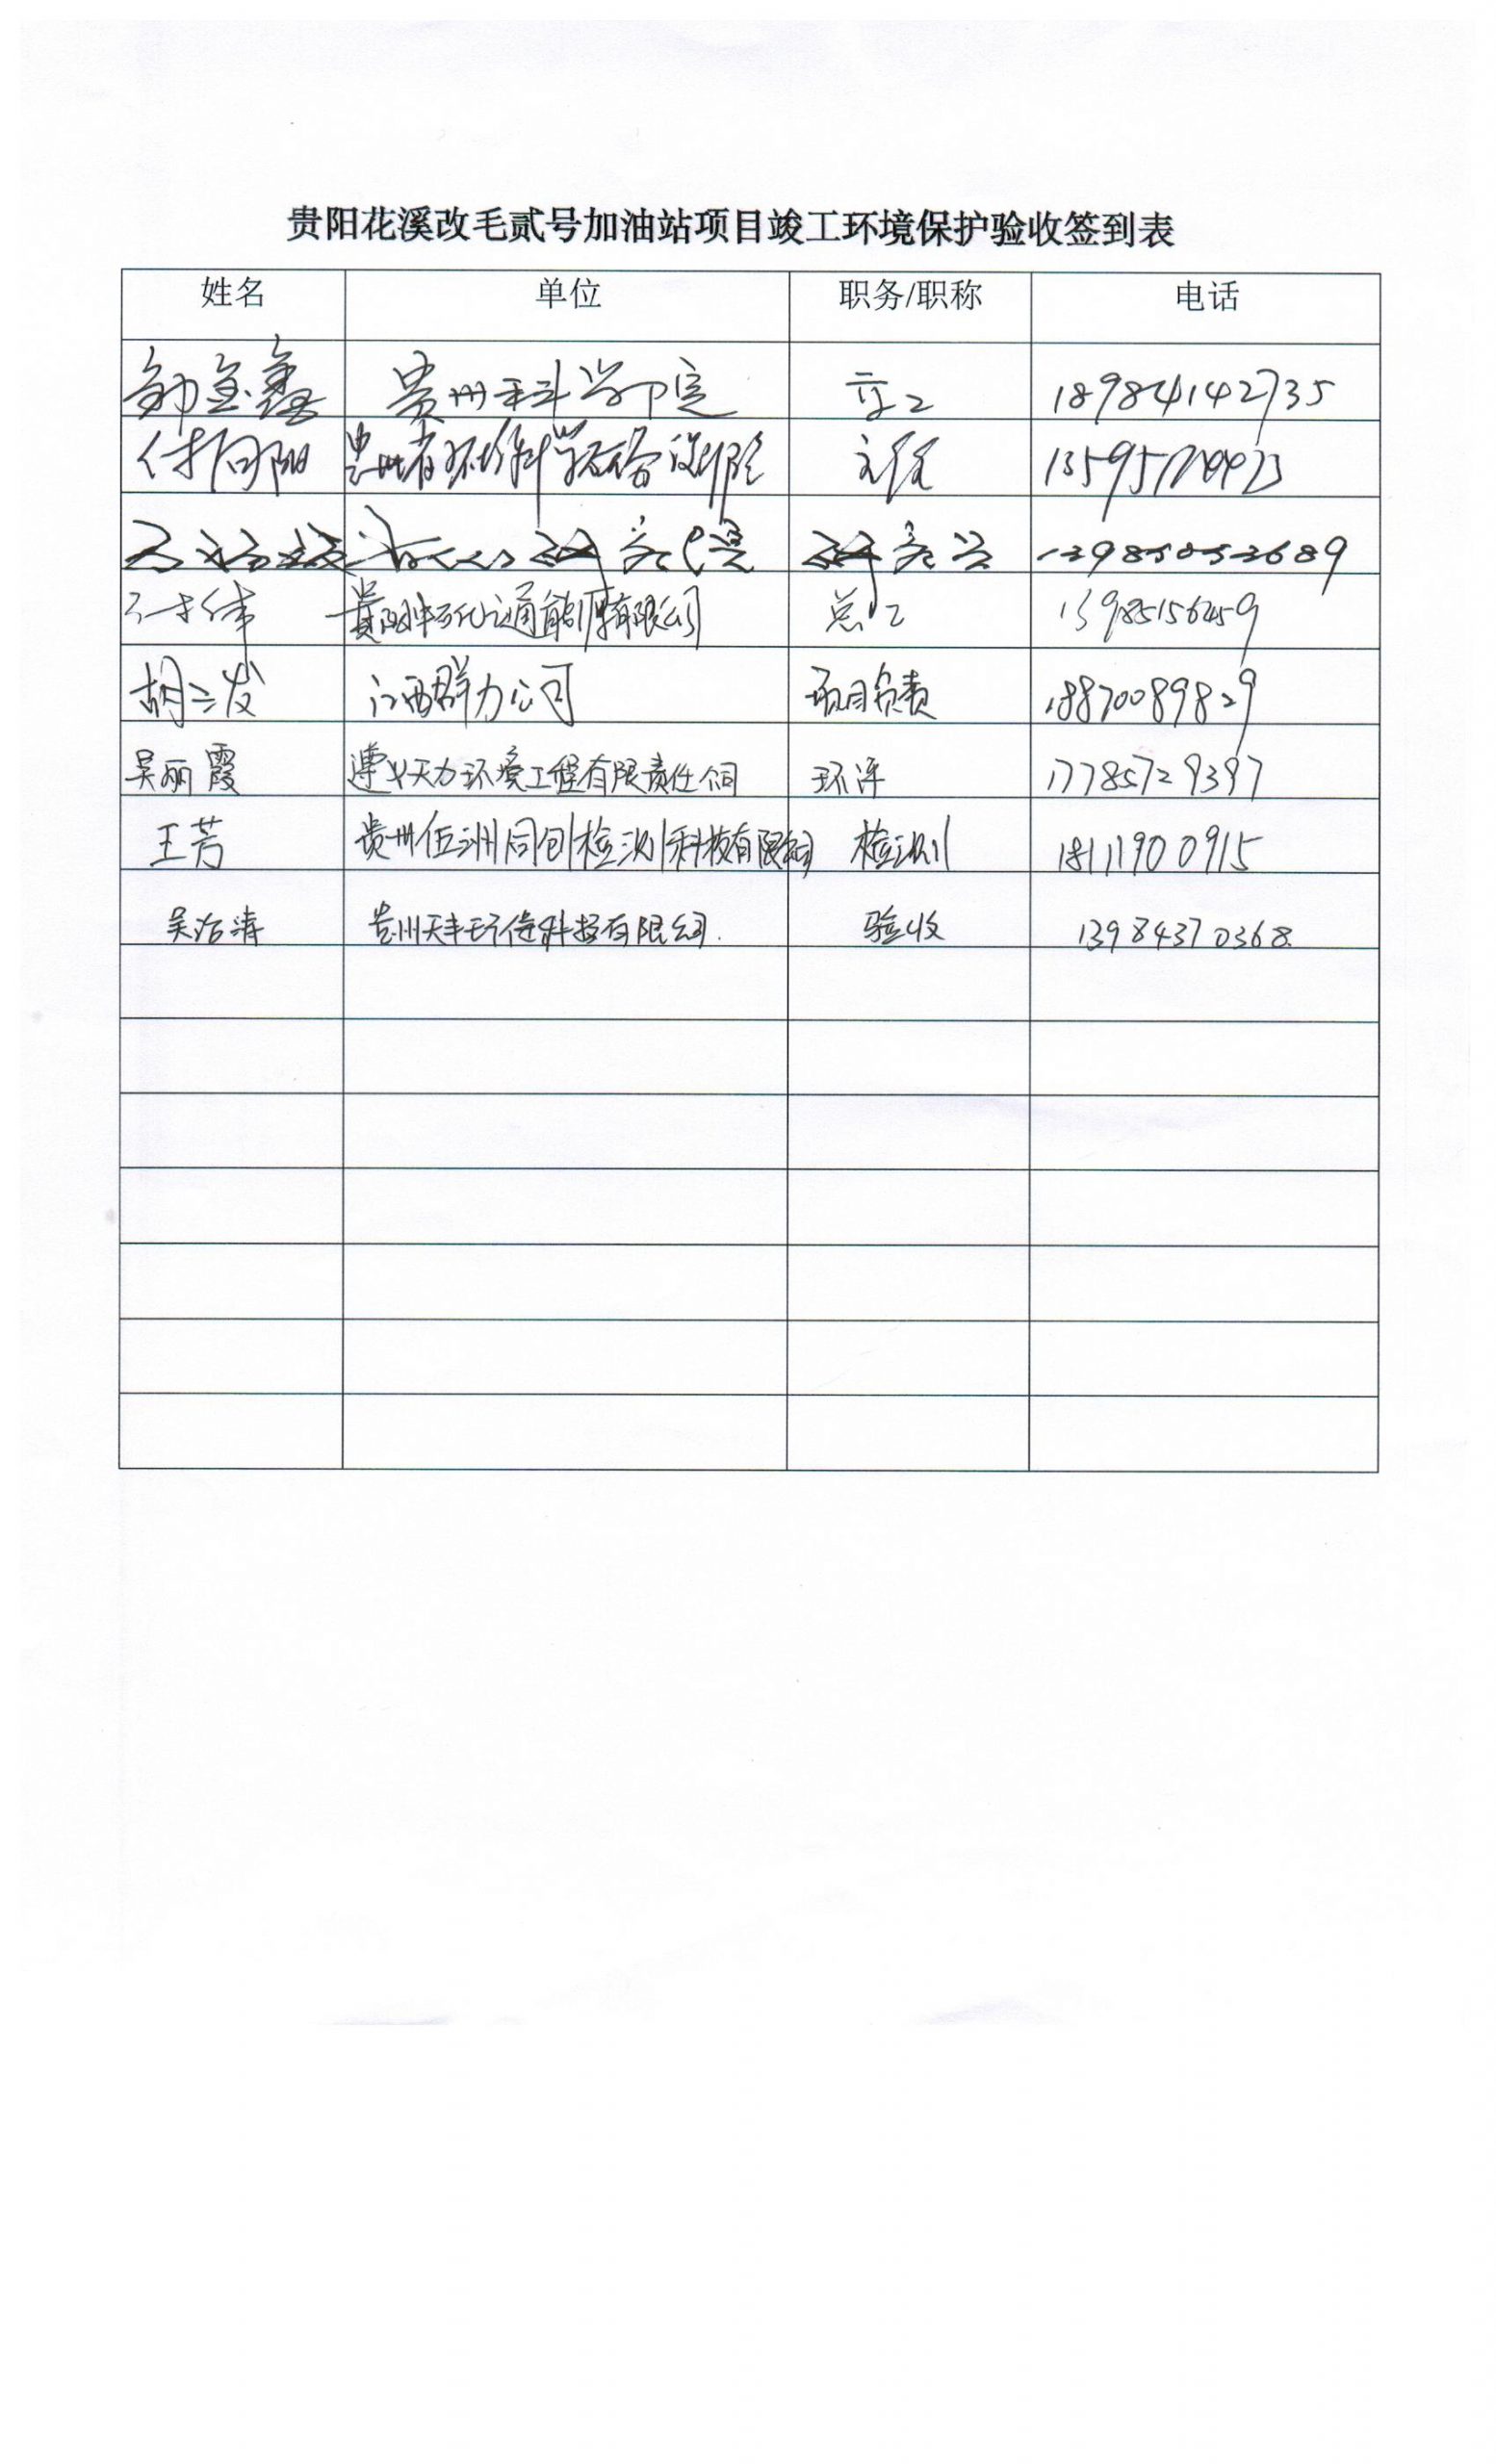 贵阳花溪改毛贰号加油站项目竣工环境保护验收签到表
姓名 单位 职务/职称 电话
贵州科学院 高工 18984142735
付向阳 贵州省环境科学研究设计院 主任
13985052689
有限公司 总工 13985156459
胡二发 江西群力公司 项目负责 18870089829
吴丽霞 遵义天力环境工程有限责任公司 环评 17785729397
王芳 贵州伍洲同创检测科技有限公司 检测 18111900915
贵州天丰环保科技有限公司. 验收 13984370368